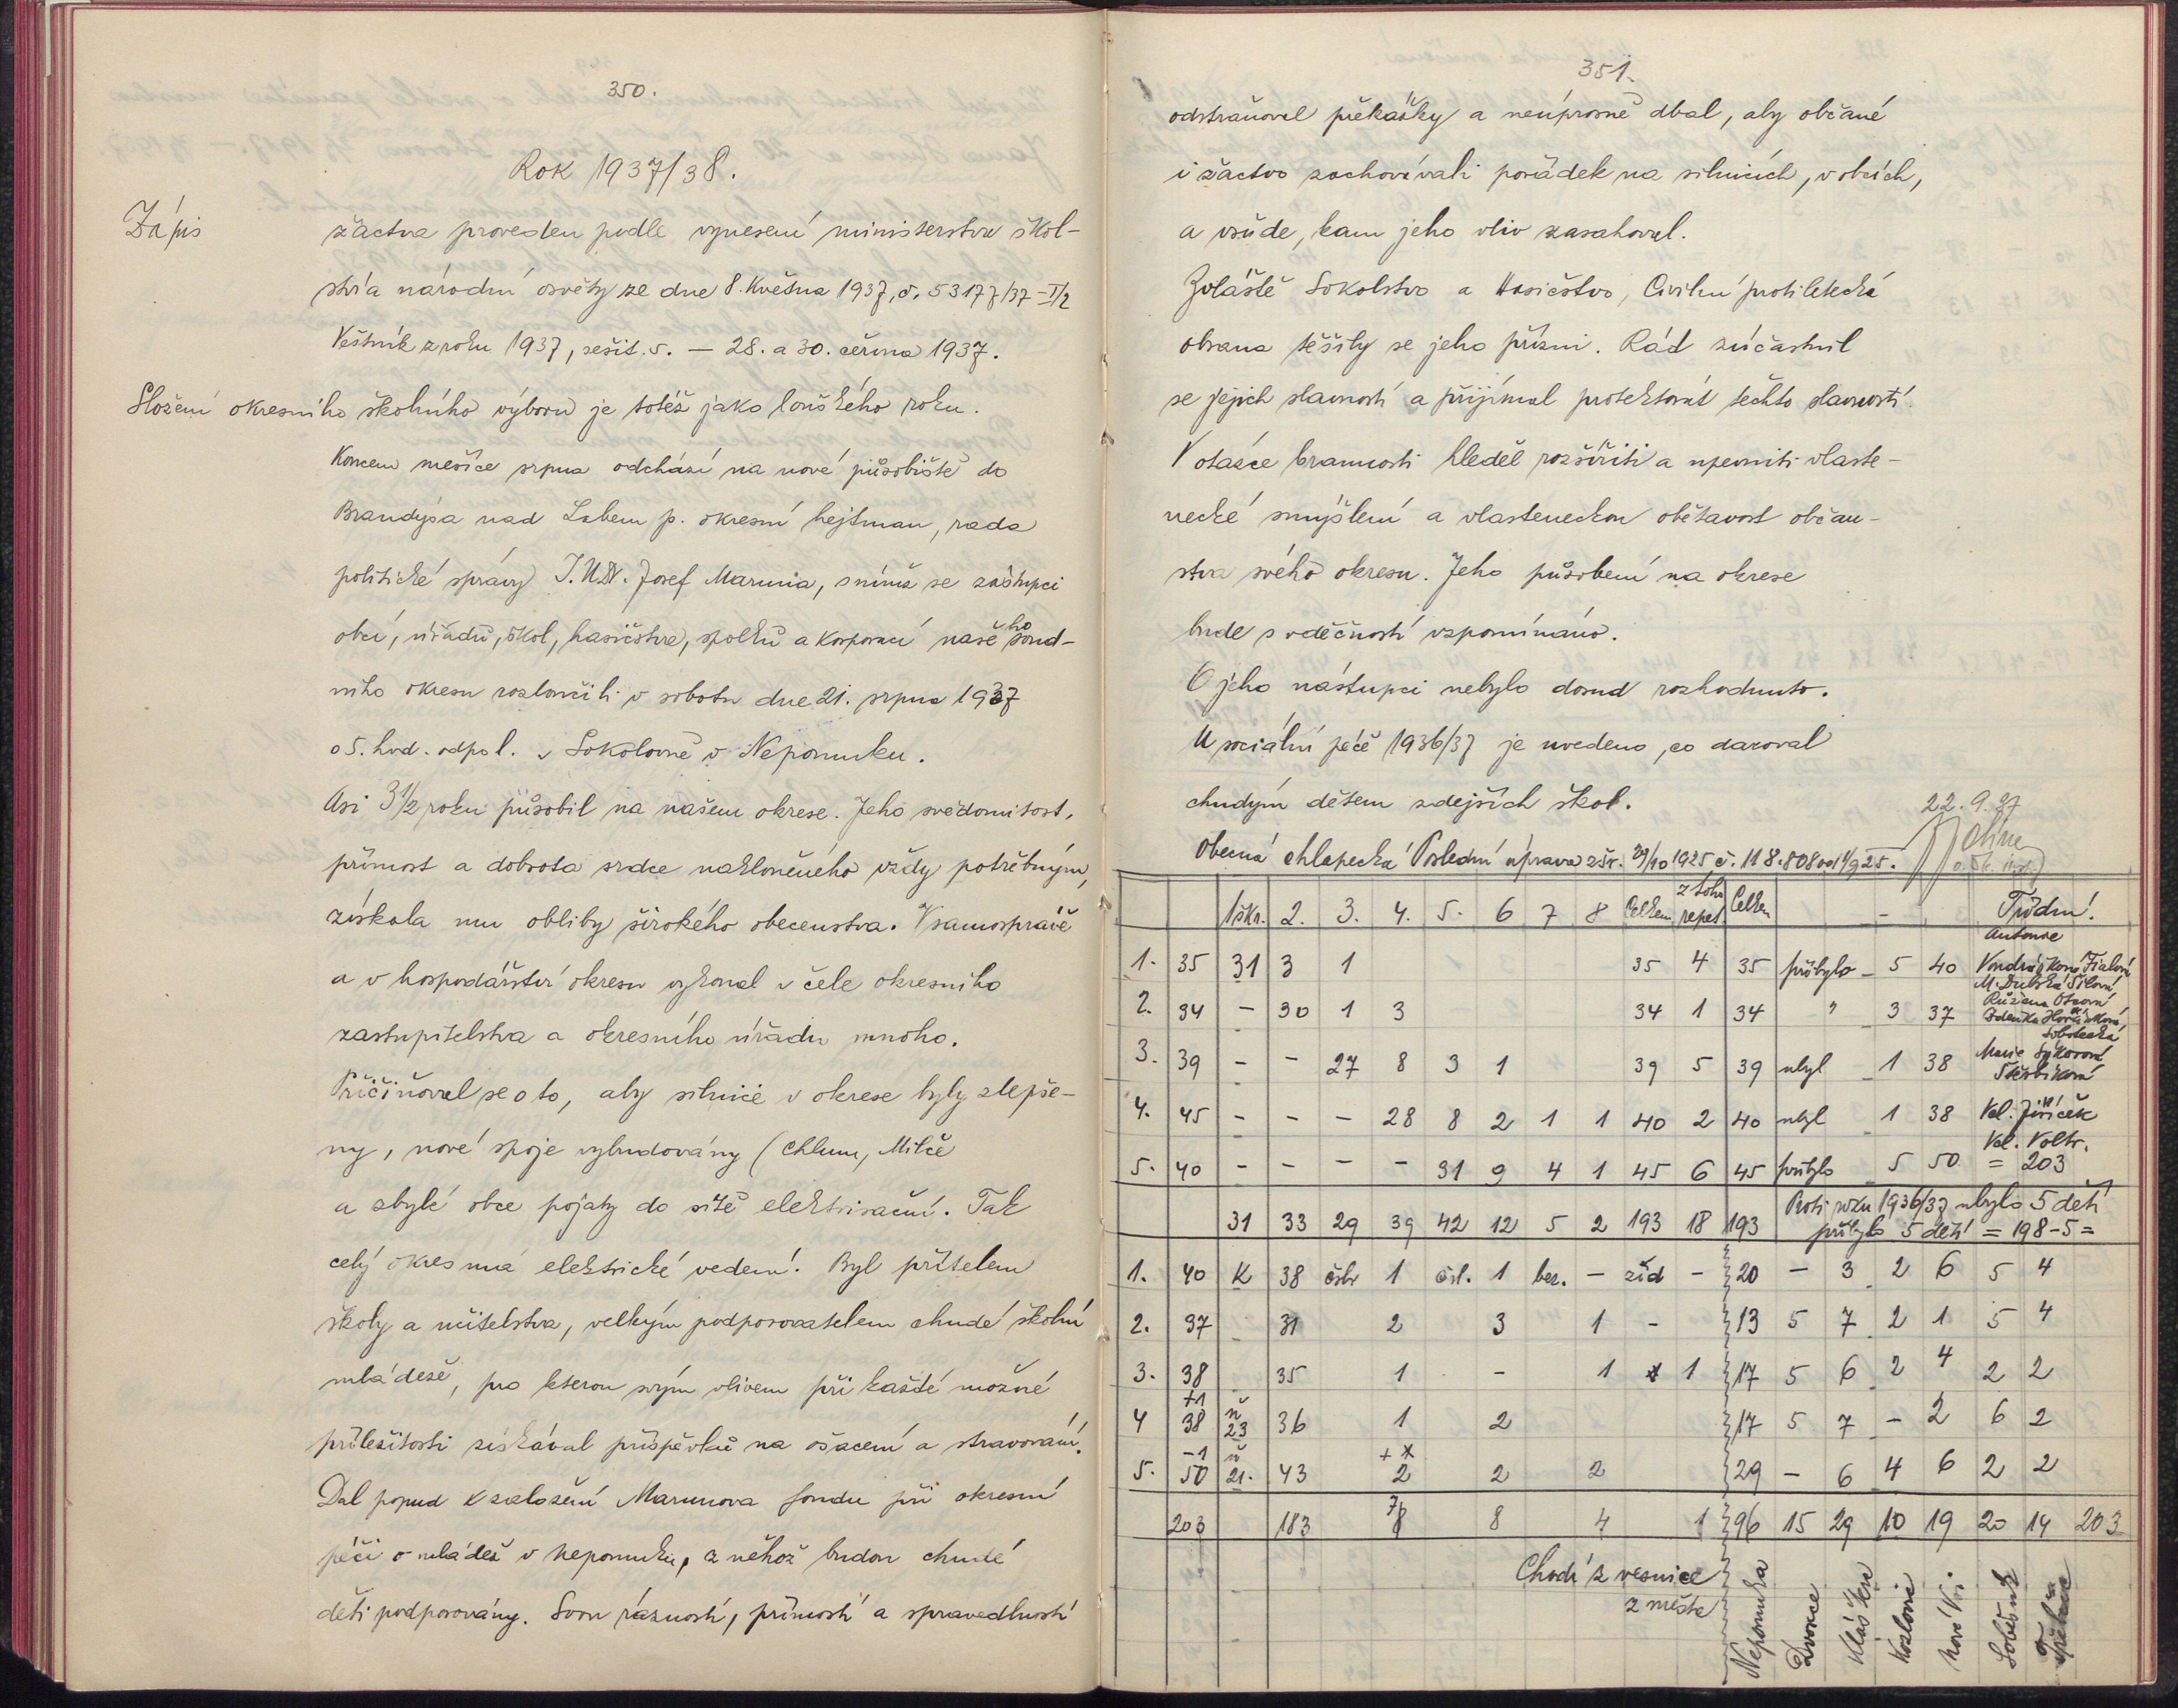 350.
Rok 1937/38.
Zápis žactva proveden podle vynesení ministerstva škol-
ství a národní osvěty ze dne 8. května 1937, č. 53177/37-I/2
Věstník z roku 1937, sešit. 5. — 28. a 30. června 1937.
Složení okresního školního výboru je totéž jako loňského roku.
Koncem měsíce srpna odchází na nové působiště do
Brandýsa nad Labem p. okresní hejtman, rada
politické správy J.UDr. Josef Marunia, s nímž se zástupci
obcí, úřadů, škol, hasičstva, spolků a korporací našeho soud-
ního okresu rozloučili v sobotu dne 21. srpna 1937
o 5. hod. odpol. v Sokolovně v Nepomuku.
Asi 3 1/2 roku působil na našem okrese. Jeho svědomitost,
přímost a dobrota srdce nakloněného vždy potřebným,
získala mu obliby širokého obecenstva. V samosprávě
a v hospodářství okresu vykonal v čele okresního
zastupitelstva a okresního úřadu mnoho.
Přičiňoval se o to, aby silnice v okrese byly zlepše-
ny, nové spoje vybudovány (Chlum, Milče
a zbylé obce pojaty do sítě elektrisační. Tak
celý okres má elektrické vedení. Byl přítelem
školy a učitelstva, velkým podporovatelem chudé školní
mládeže, pro kterou svým vlivem při každé možné
příležitosti získával příspěvků na ošacení a stravování.
Dal popud k založení Marunova fondu při okresní
péči o mládež v Nepomuku, z něhož budou chudé
děti podporovány. Svou rázností, přímostí a spravedlností
351.
odstraňoval překážky a neúprosně dbal, aby občané
i žactvo zachovávali pořádek na silnicích, v obcích,
a všude, kam jeho vliv zasahoval.
Zvláště Sokolstvo a Hasičstvo, Civilní protiletecká
obrana těšily se jeho přízni. Rád zúčastnil
se jejich slavností a přijímal protektorát těchto slavností.
V otázce brannosti hleděl rozšířiti a upevniti vlaste-
necké smýšlení a vlasteneckou obětavost občan-
stva svého okresu. Jeho působení na okrese
bude s vděčností vzpomínáno.
O jeho nástupci nebylo dosud rozhodnuto.
U sociální péče 1936/37 je uvedeno, co daroval
chudým dětem zdejších škol.
22. 9. 37
Obecná chlapecká Poslední úprava zšr. 29/10 1925 č. 118.808 od 1/9 25.
1 škr. 2. 3. 4. 5. 6 7 8 Celkem z toho repet. Celkem - Třídní.
1. 35 31 3 1 35 4 35 přibylo - 5 40 Antonie Vondrášková Fialová
M. Dubská Šílová
2. 34 - 30 1 3 34 1 34 " 3 37 Růžena Otcová
Zdenka Horáčková
Sobotecká
3. 39 - - 27 8 3 1 39 5 39 ubyl - 1 38 Marie Sýkorová
Štěrbíková
4. 45 - - - 28 8 2 1 1 40 2 40 ubyl - 1 38 Vál. Jiříček
Vál. Voltr.
5. 40 - - - - 31 9 4 1 45 6 45 přibylo 5 50 = 203
31 33 29 39 42 12 5 2 193 18 193 Proti roku 1936/37 ubylo 5 dětí
přibylo 5 dětí = 198-5=
1. 40 K 38 čsbr 1 čsl. 1 bez. - žid - 20 - 3 2 6 5 4
2. 37 31 2 3 1 - 13 5 7 2 1 5 4
3. 38 35 1 - 1 1 17 5 6 2 4 2 2
+1
4 38 n 23 36 1 2 17 5 7 - 2 6 2
-1
5. 50 n 21. 43 2 2 2 29 - 6 4 6 2 2
203 183 7 8 8 4 1 96 15 29 10 19 20 14 203
Chodí z vesnice
z města
Nepomuka
Dvorce
Klášter
Kozlovic
Nové Vsi
Soběsuk
Třebčic